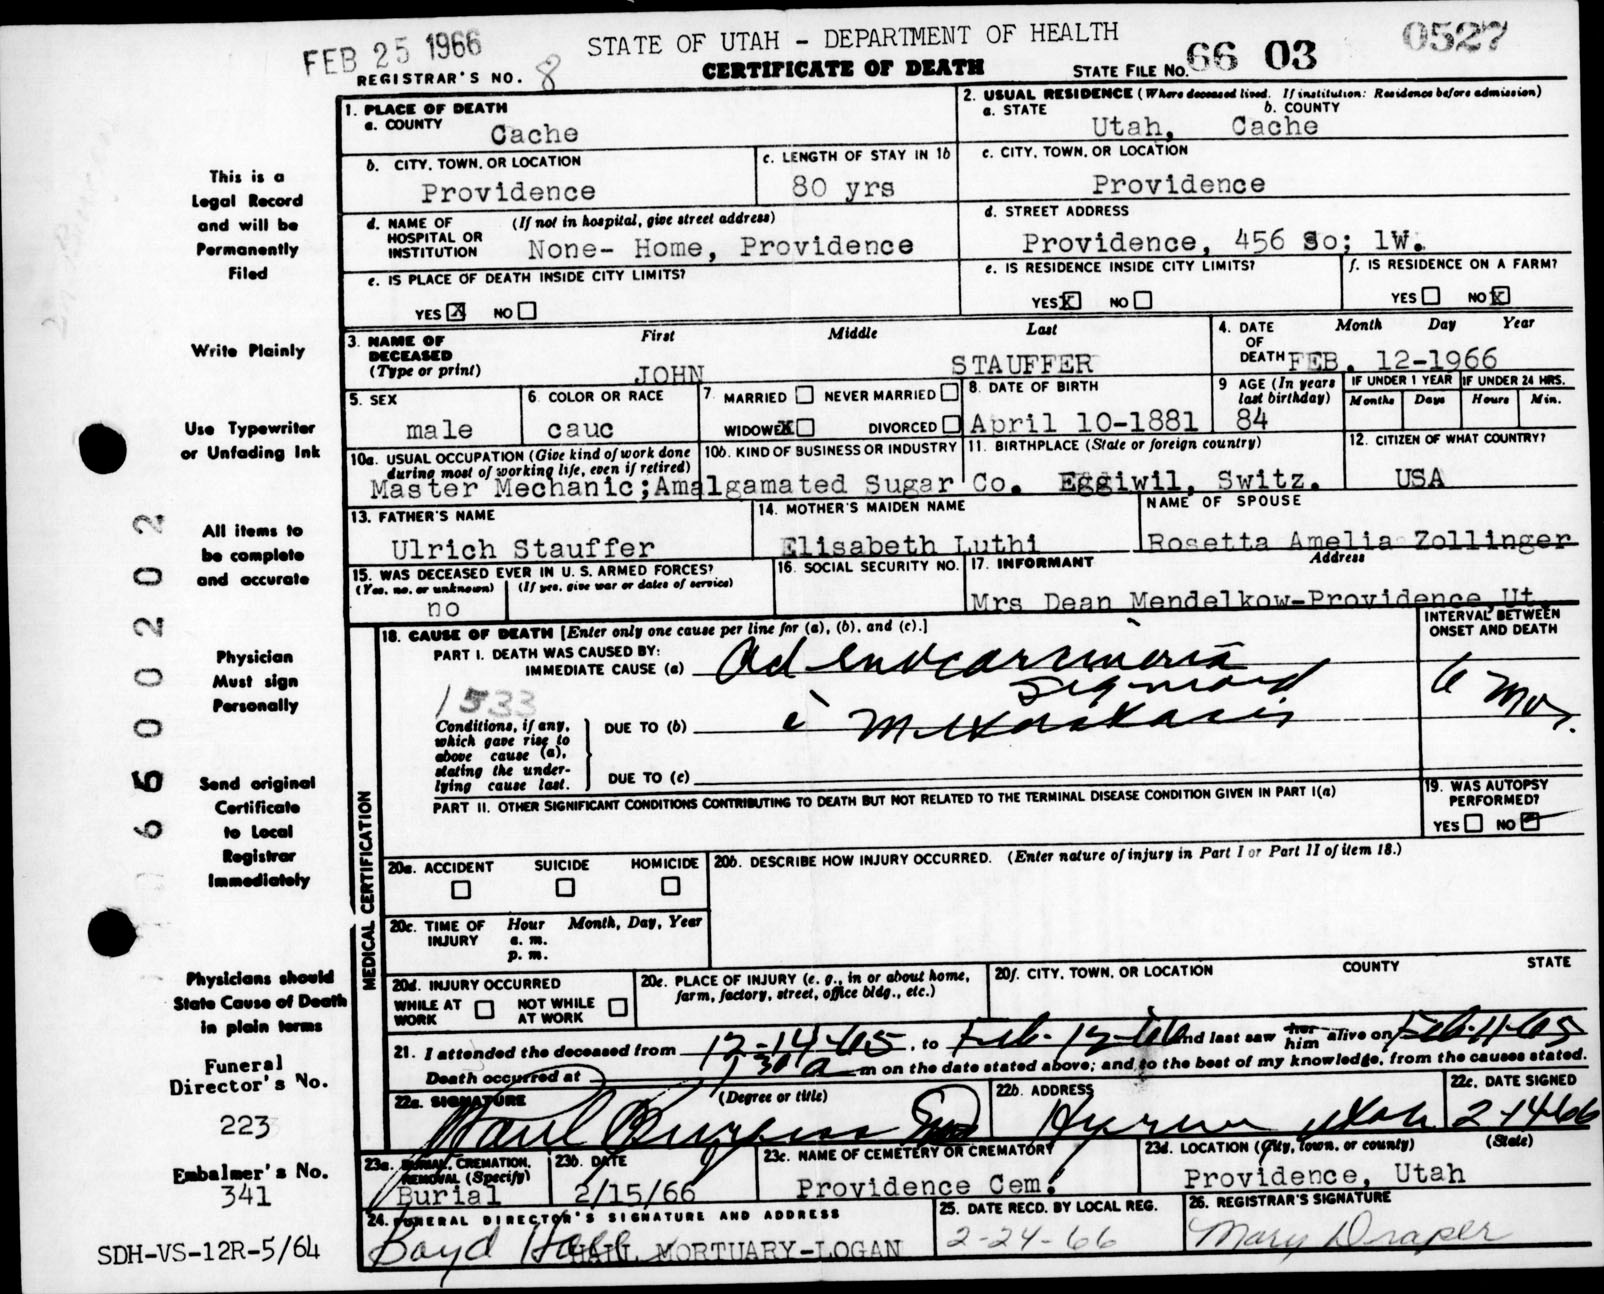 FEB 25 1966
STATE OF UTAH - DEPARTMENT OF HEALTH
66 03
0527
REGISTRAR'S NO. 8
CERTIFICATE OF DEATH
STATE FILE NO.
1. PLACE OF DEATH
a. COUNTY
Cache
2. USUAL RESIDENCE (Where deceased lived. If institution: Residence before admission)
a. STATE
b. COUNTY
Utah, Cache
b. CITY, TOWN, OR LOCATION
Providence
c. LENGTH OF STAY IN 1b
80 yrs
c. CITY, TOWN, OR LOCATION
Providence
d. NAME OF HOSPITAL OR INSTITUTION
(If not in hospital, give street address)
None- Home, Providence
d. STREET ADDRESS
Providence, 456 So; 1W.
e. IS PLACE OF DEATH INSIDE CITY LIMITS?
YES X NO
e. IS RESIDENCE INSIDE CITY LIMITS?
YES X NO
f. IS RESIDENCE ON A FARM?
YES NO X
3. NAME OF DECEASED (Type or print)
First Middle Last
JOHN STAUFFER
4. DATE OF DEATH
Month Day Year
FEB. 12-1966
5. SEX
male
6. COLOR OR RACE
cauc
7. MARRIED NEVER MARRIED
WIDOWED X DIVORCED
8. DATE OF BIRTH
April 10-1881
9 AGE (In years last birthday)
84
IF UNDER 1 YEAR
Months Days
IF UNDER 24 HRS.
Hours Min.
10a. USUAL OCCUPATION (Give kind of work done during most of working life, even if retired)
10b. KIND OF BUSINESS OR INDUSTRY
Master Mechanic;Amalgamated Sugar Co.
11. BIRTHPLACE (State or foreign country)
Eggiwil, Switz.
12. CITIZEN OF WHAT COUNTRY?
USA
13. FATHER'S NAME
Ulrich Stauffer
14. MOTHER'S MAIDEN NAME
Elisabeth Luthi
NAME OF SPOUSE
Rosetta Amelia Zollinger
15. WAS DECEASED EVER IN U. S. ARMED FORCES?
(Yes, no, or unknown) (If yes, give war or dates of service)
no
16. SOCIAL SECURITY NO.
17. INFORMANT
Address
Mrs Dean Mendelkow-Providence,Ut.
MEDICAL CERTIFICATION
18. CAUSE OF DEATH [Enter only one cause per line for (a), (b), and (c).]
INTERVAL BETWEEN ONSET AND DEATH
PART I. DEATH WAS CAUSED BY:
IMMEDIATE CAUSE (a)
Adenocarcinoma
Sigmoid
6 Mos.
1533
Conditions, if any, which gave rise to above cause (a), stating the underlying cause last.
DUE TO (b)
c̄ Metastasis
DUE TO (c)
PART II. OTHER SIGNIFICANT CONDITIONS CONTRIBUTING TO DEATH BUT NOT RELATED TO THE TERMINAL DISEASE CONDITION GIVEN IN PART I(a)
19. WAS AUTOPSY PERFORMED?
YES NO
20a. ACCIDENT SUICIDE HOMICIDE
20b. DESCRIBE HOW INJURY OCCURRED. (Enter nature of injury in Part I or Part II of item 18.)
20c. TIME OF INJURY
Hour Month, Day, Year
a. m.
p. m.
20d. INJURY OCCURRED
WHILE AT WORK
NOT WHILE AT WORK
20e. PLACE OF INJURY (e. g., in or about home, farm, factory, street, office bldg., etc.)
20f. CITY, TOWN, OR LOCATION COUNTY STATE
21. I attended the deceased from 12-14-65, to Feb-12-66 and last saw her him alive on Feb-11-65
Death occurred at 1 30 a m on the date stated above; and to the best of my knowledge, from the causes stated.
22a. SIGNATURE
(Degree or title)
Burgess MD
22b. ADDRESS
Hyrum Utah
22c. DATE SIGNED
2-14-66
23a. BURIAL, CREMATION, REMOVAL (Specify)
Burial
23b. DATE
2/15/66
23c. NAME OF CEMETERY OR CREMATORY
Providence Cem.
23d. LOCATION (City, town, or county) (State)
Providence, Utah
24. FUNERAL DIRECTOR'S SIGNATURE AND ADDRESS
Boyd Hall
HALL MORTUARY-LOGAN
25. DATE RECD. BY LOCAL REG.
2-24-66
26. REGISTRAR'S SIGNATURE
Mary Draper
This is a
Legal Record
and will be
Permanently
Filed
Write Plainly
Use Typewriter
or Unfading Ink
All items to
be complete
and accurate
Physician
Must sign
Personally
Send original
Certificate
to Local
Registrar
Immediately
Physicians should
State Cause of Death
in plain terms
Funeral
Director's No.
223
Embalmer's No.
341
SDH-VS-12R-5/64
6 6 0 0 2 0 2